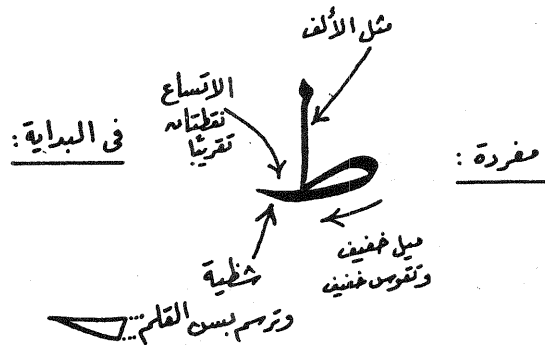 مثل الألف
مفردة :
ط
الاتساع
نقطتان
تقريبًا
فى البداية :
ميل خفيف
وتقوس خفيف
شظية
وترسم بسن القلم...